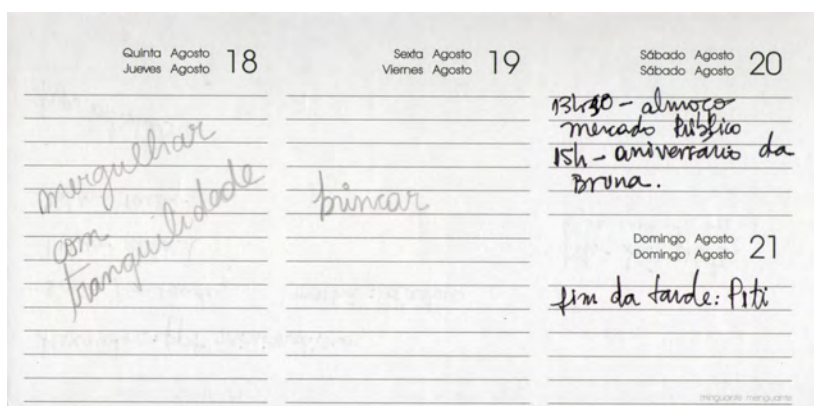 Quinta Agosto 18
Jueves Agosto
mergulhar
com
tranquilidade
Sexta Agosto 19
Viernes Agosto
brincar
Sábado Agosto 20
Sábado Agosto
13h30 - almoço
mercado Público
15h - aniversário da
Bruna.
Domingo Agosto 21
Domingo Agosto
fim da tarde: Piti
minguante menguante